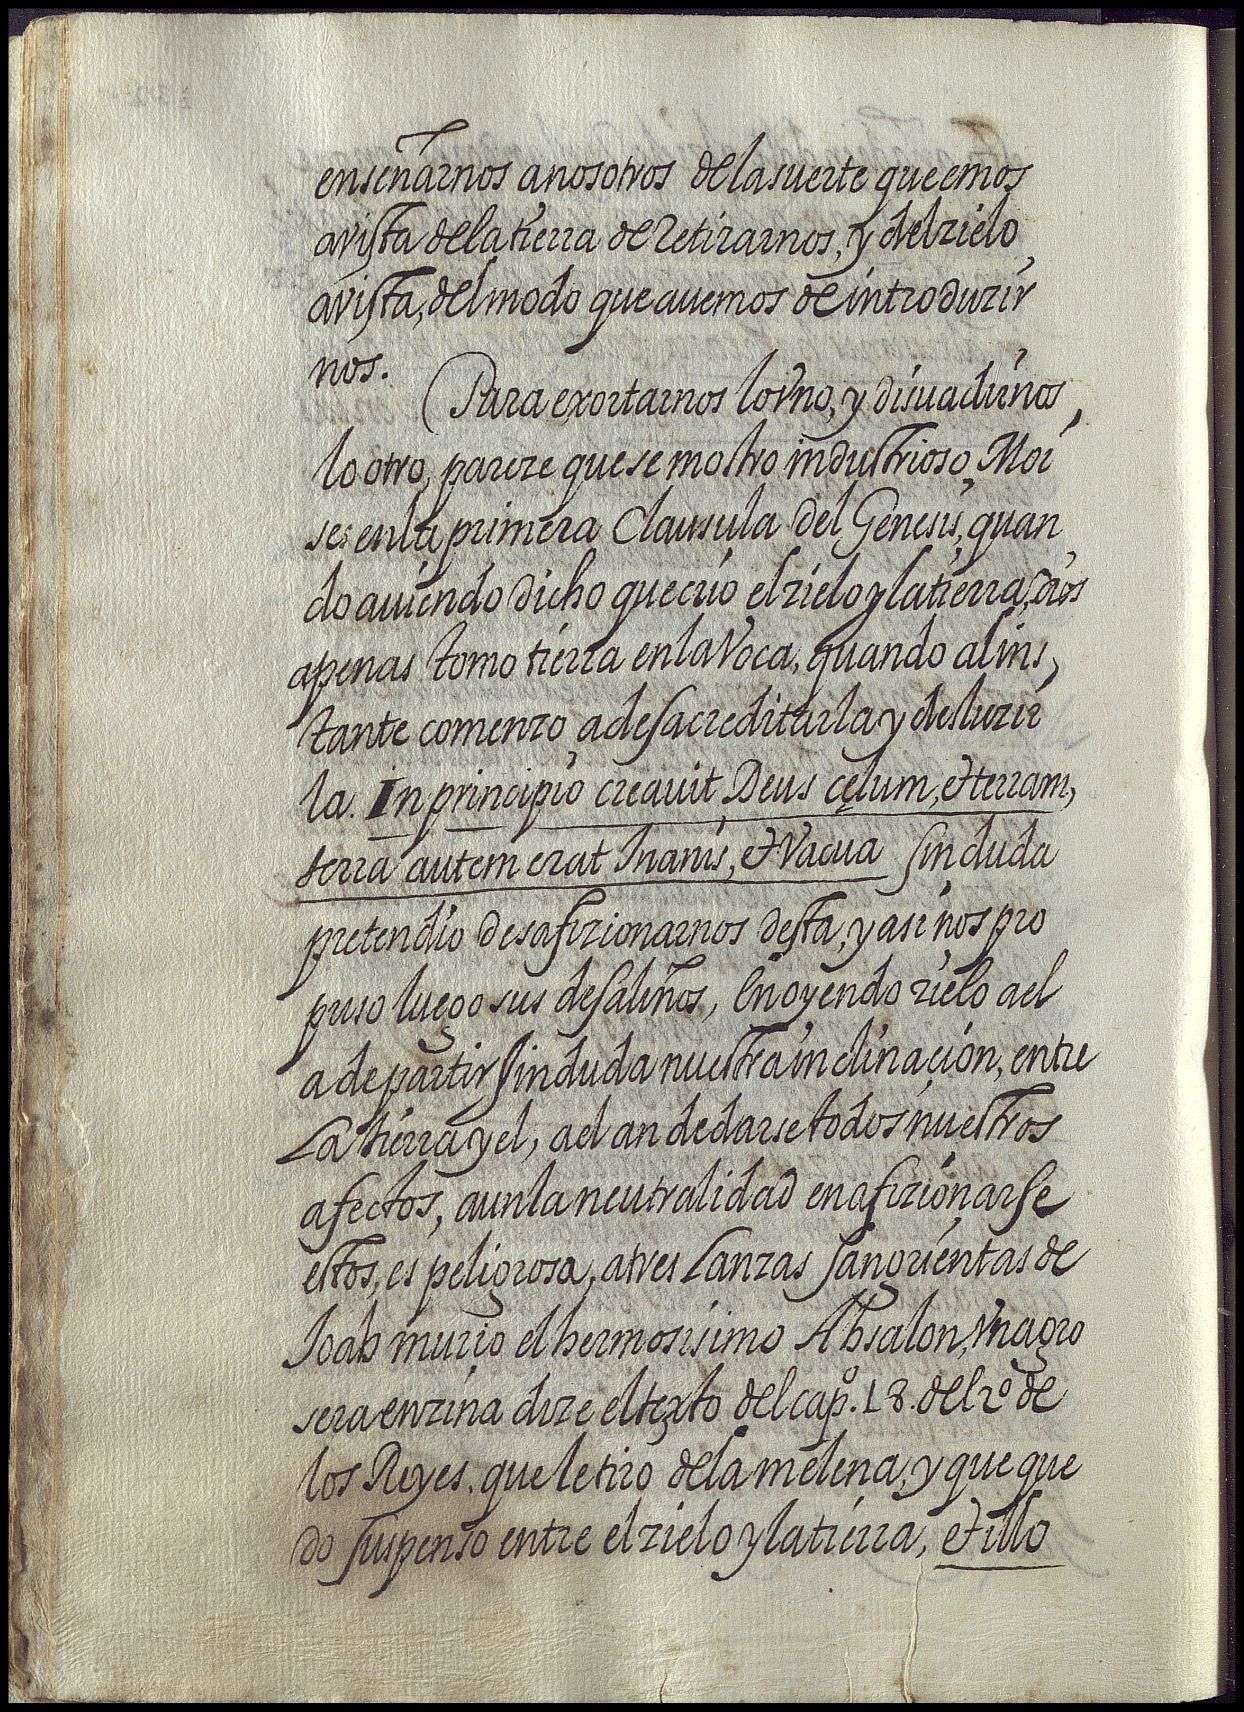 enseñarnos a nosotros de la suerte que emos
a vista de la tierra de Retirarnos, y del zielo
a vista, del modo que auemos de introduzir
nos.
Para exortarnos lo vno, y disuadirnos,
lo otro, pareze que se mostro industrioso, Moi
ses en la primera Clausula del Genesis, quan
do auiendo dicho que crio el zielo y la tierra, Dios
apenas tomo tierra en la Voca, quando al ins,
tante comenzo a desacreditarla y desluzir
la. In principio creauit Deus cęlum, et terram,
terra autem erat Inanis, et Vacua sin duda
pretendio desafizionarnos desta, y asi nos pro
puso luego sus desaliños, En oyendo zielo a el
a de partir sin duda nuestra inclinación, entre
La tierra y el, a el an de darse todos nuestros
afectos, aun la neutralidad en afizionarse
estos, es peligrosa, a tres Lanzas sangrientas de
Joab murio el hermosisimo Absalon, vna gro
sera enzina dize el texto del capº. 18. del 2º de
los Reyes. que le tiro de la melena, y que que
do suspenso entre el zielo y la tierra, et illo